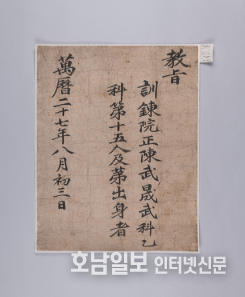 教旨
訓鍊院正陳武晟武科乙
科第十五人及第出身者
萬曆二十七年八月初三日
호남일보 인터넷신문